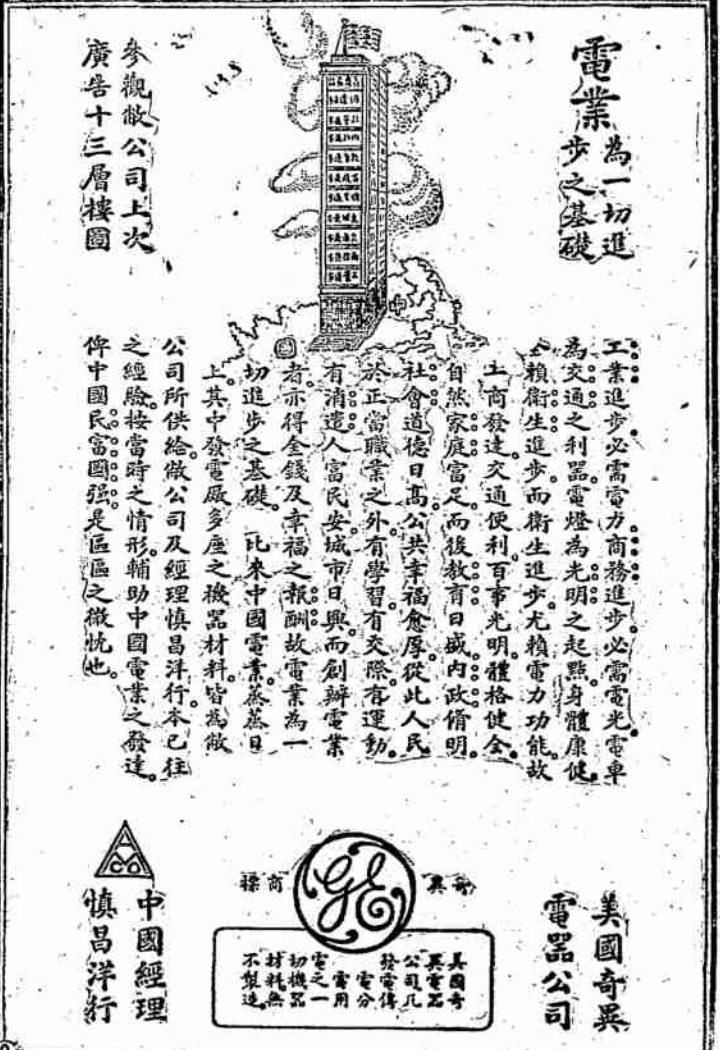 電業
為一切進
步之基礎
中
國
參觀敝公司上次
廣告十三層樓圖
工業進步必需電力。商務進步必需電光。電車
為交通之利器。電燈為光明之起點。身體康健。
全賴衛生進步。而衛生進步。尤賴電力功能。故
工商發達。交通便利。百事光明。體格健全。
自然家庭富足。而後教育日盛。內政脩明。
社會道德日高。公共幸福愈厚。從此人民
於正當職業之外。有學習。有交際。有運動。
有消遣。人富民安。城市日興。而創辦電業
者。亦得金錢及幸福之報酬。故電業為一
切進步之基礎。 比來中國電業。蒸蒸日
上。其中發電廠多座之機器材料。皆為敝
公司所供給。敝公司及經理慎昌洋行。本已往
之經驗。按當時之情形。輔助中國電業之發達。
俾中國民富國强。是區區之微忱也。
美國奇異
電器公司
奇異
GE
商標
美國奇
異電器
公司凡
發電傳
電分
電用
電之一
切機器
材料無
不製造。
AMCO
中國經理
慎昌洋行